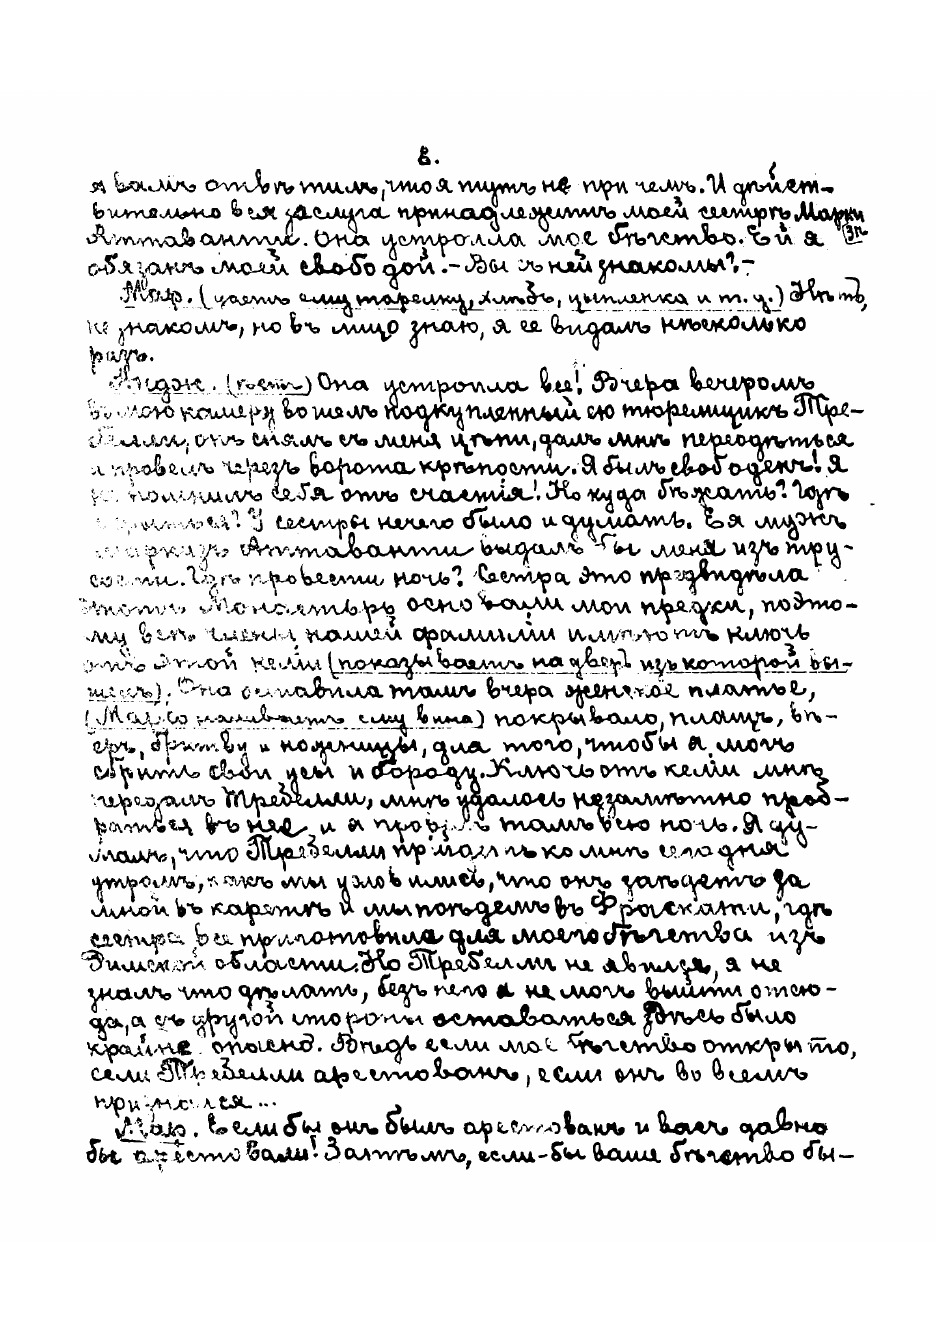 8.
я вамъ отвѣтилъ, что я тутъ не при чемъ. И дѣйст-
вительно вся заслуга принадлежитъ моей сестрѣ Марки
зѣ
Аттаванти. Она устроила мое бѣгство. Ей я
обязанъ моей свободой. - Вы съ ней знакомы? -
Мар. (даетъ ему тарелку, хлѣбъ, цыпленка и т. д.) Нѣтъ,
не знакомъ, но въ лицо знаю, я ее видалъ нѣсколько
разъ.
Андж. (ѣстъ) Она устроила все! Вчера вечеромъ
въ мою камеру вошелъ подкупленный ею тюремщикъ Тре-
белли, онъ снялъ съ меня цѣпи, далъ мнѣ переодѣться
и провелъ черезъ ворота крѣпости. Я былъ свободенъ! Я
не помнилъ себя отъ счастія! Но куда бѣжать? Гдѣ
укрыться? У сестры нечего было и думать. Ея мужъ
маркизъ Аттаванти выдалъ бы меня изъ тру-
сости. Гдѣ провести ночь? Сестра это предвидѣла
этотъ Монастырь основали мои предки, поэто-
му всѣ члены нашей фамиліи имѣютъ ключъ
отъ этой келіи (показываетъ на дверь изъ которой вы-
шелъ). Она оставила тамъ вчера женское платье,
(Марıо наливаетъ ему вина) покрывало, плащъ, вѣ-
еръ, бритву и ножницы, для того, чтобы я могъ
сбрить свои усы и бороду. Ключъ отъ келіи мнѣ
передалъ Требелли, мнѣ удалось незамѣтно проб-
раться въ нее и я провелъ тамъ всю ночь. Я ду-
малъ, что Требелли придетъ ко мнѣ сегодня
утромъ, какъ мы условились, что онъ заѣдетъ за
мной въ каретѣ и мы поѣдемъ въ Фраскати, гдѣ
сестра все приготовила для моего бѣгства изъ
Римской области. Но Требелли не явился, я не
зналъ что дѣлать, безъ него я не могъ выйти отсю-
да, а съ другой стороны оставаться здѣсь было
крайне опасно. Вѣдь если мое бѣгство открыто,
если Требелли арестованъ, если онъ во всемъ
признался...
Мар. Если бы онъ былъ арестованъ и васъ давно
бы арестовали! Затѣмъ, если-бы ваше бѣгство бы-